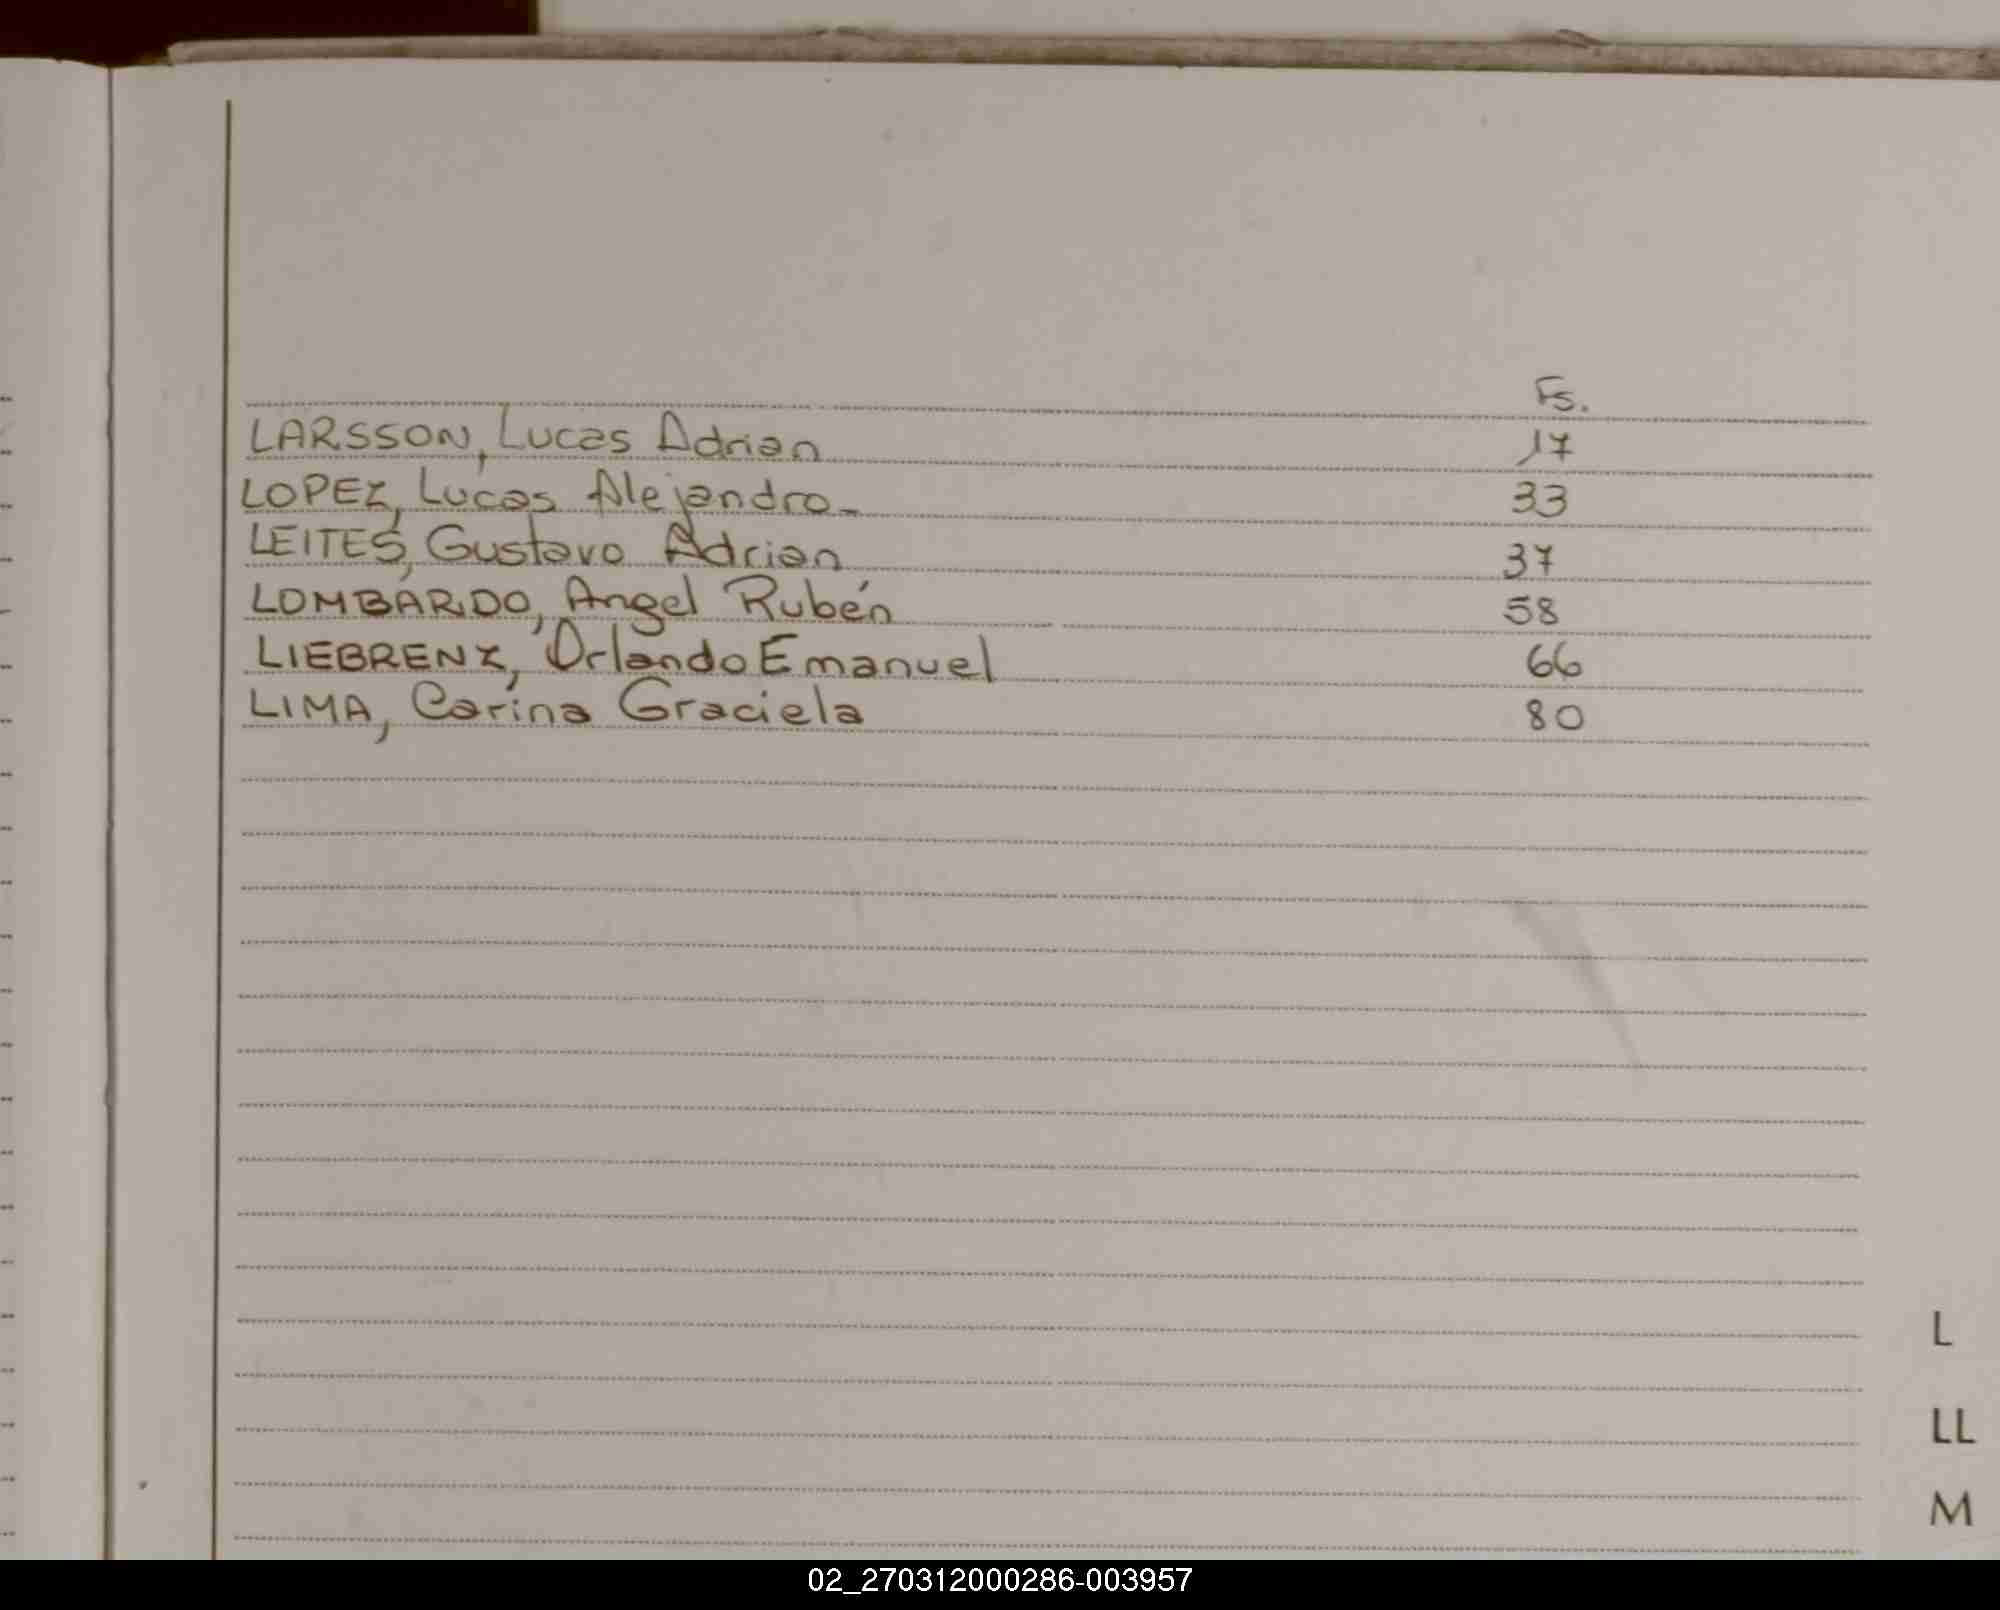 Fs.
LARSSON, Lucas Adrian 17
LOPEZ, Lucas Alejandro- 33
LEITES, Gustavo Adrian 37
LOMBARDO, Angel Rubén 58
LIEBRENZ, Orlando Emanuel 66
LIMA, Carina Graciela 80
L
LL
M
02_270312000286-003957